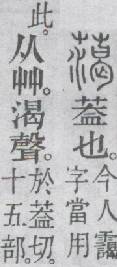 㵣 葢也。今人靄
字當用
此。从艸。渴聲。於葢切。
十五部。